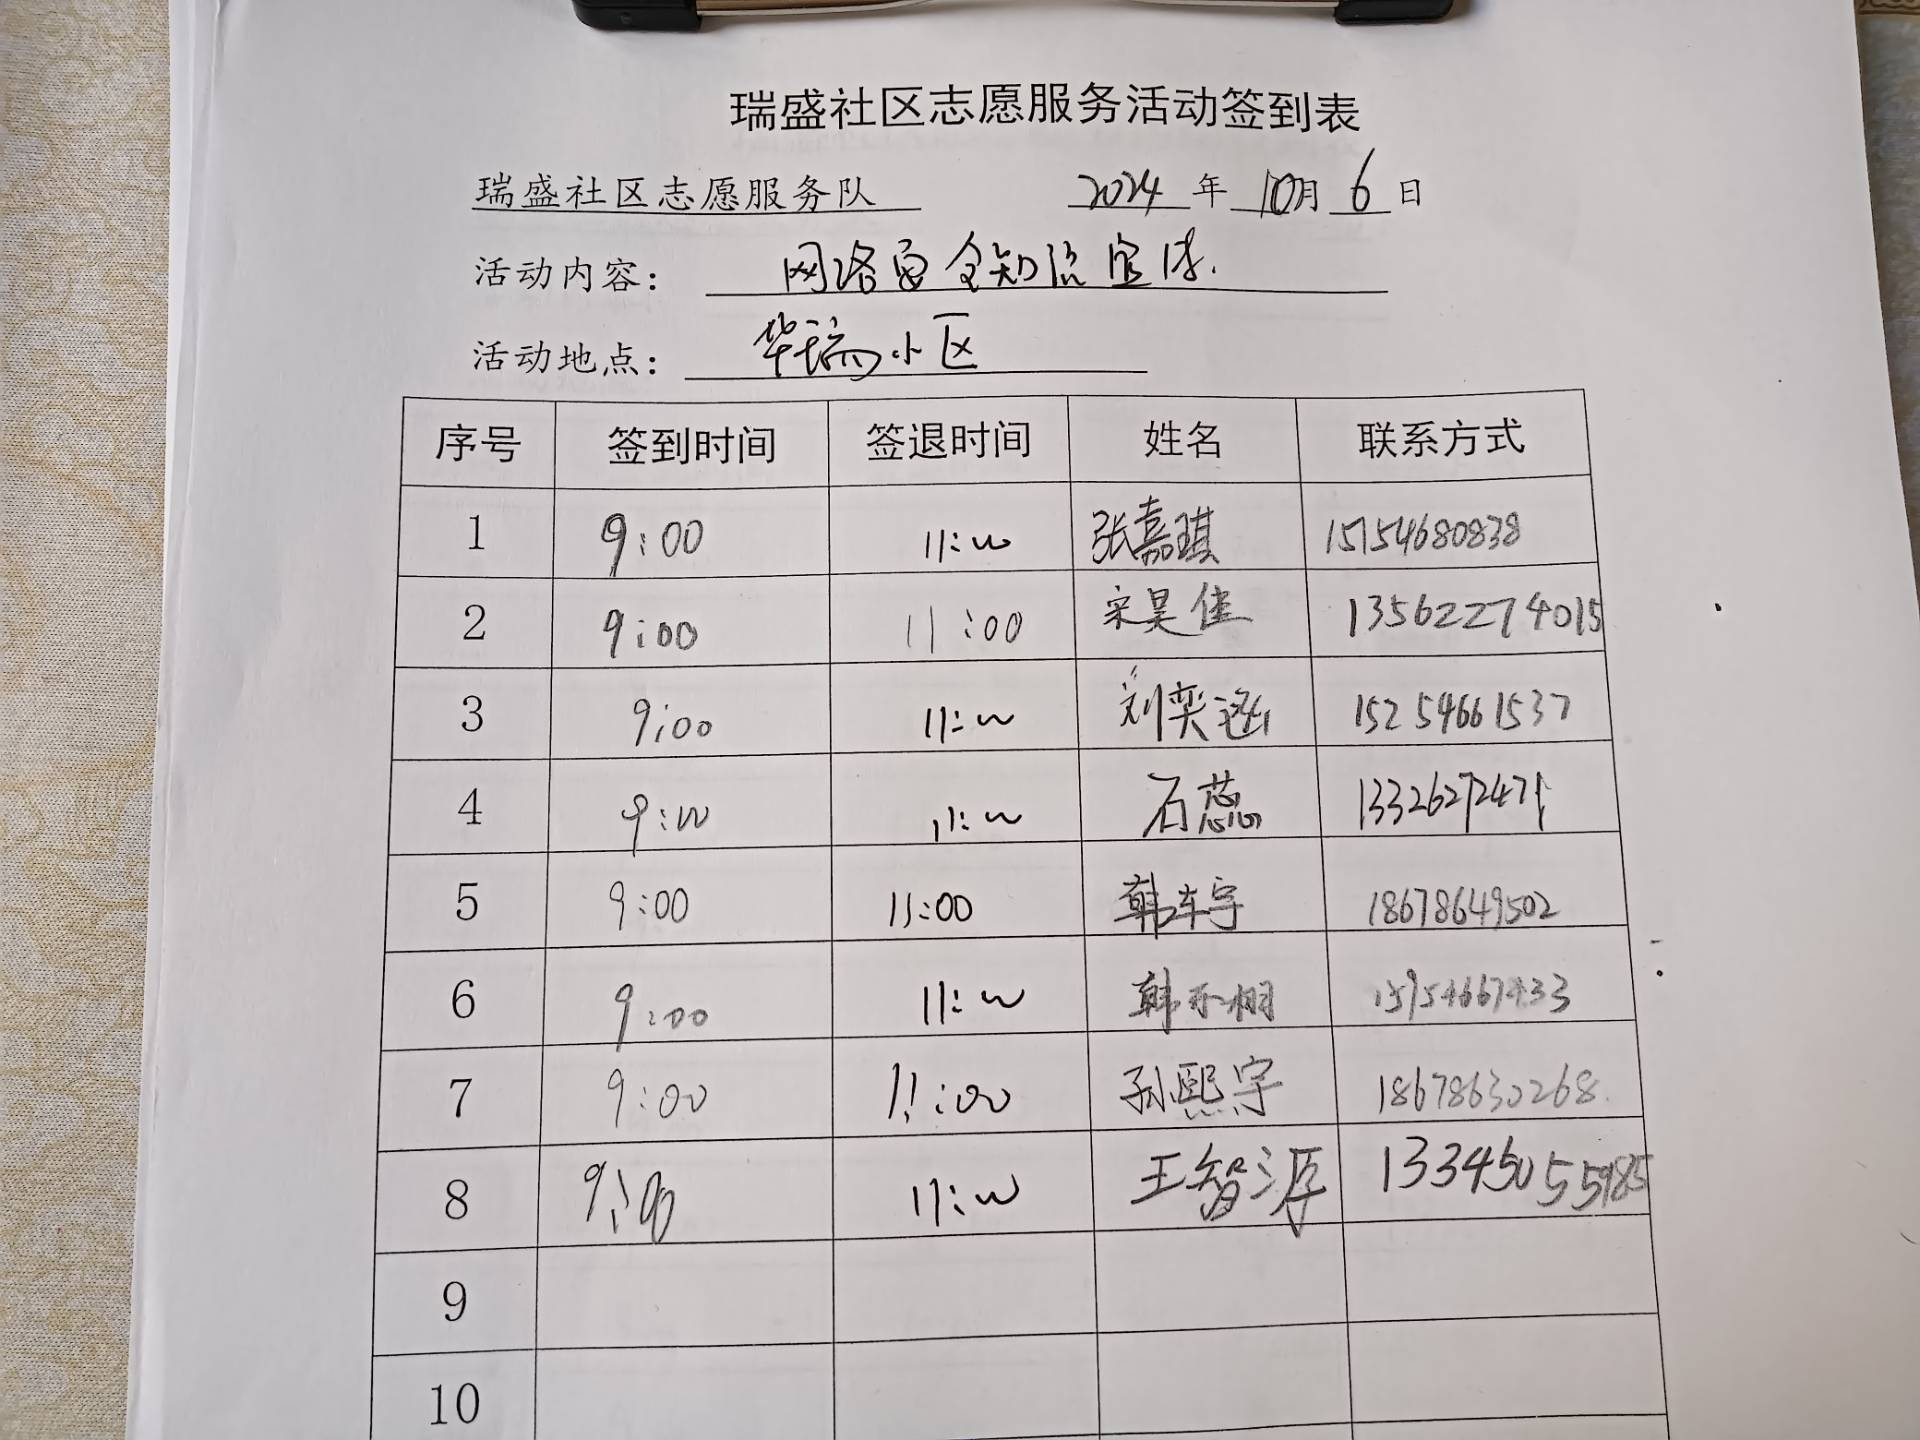 瑞盛社区志愿服务活动签到表
瑞盛社区志愿服务队 2024 年 10 月 6 日
活动内容： 网络安全知识宣传.
活动地点： 华瑞小区
序号 签到时间 签退时间 姓名 联系方式
1 9:00 11:00 张嘉琪 15154680838
2 9:00 11:00 宋昊佳 13562274015
3 9:00 11:00 刘奕涵 15254661537
4 9:00 11:00 石蕊
5 9:00 11:00 18678649502
6 9:00 11:00
7 9:00 11:00 孙熙宇 18678630268
8 9:00 11:00 王智源
9
10